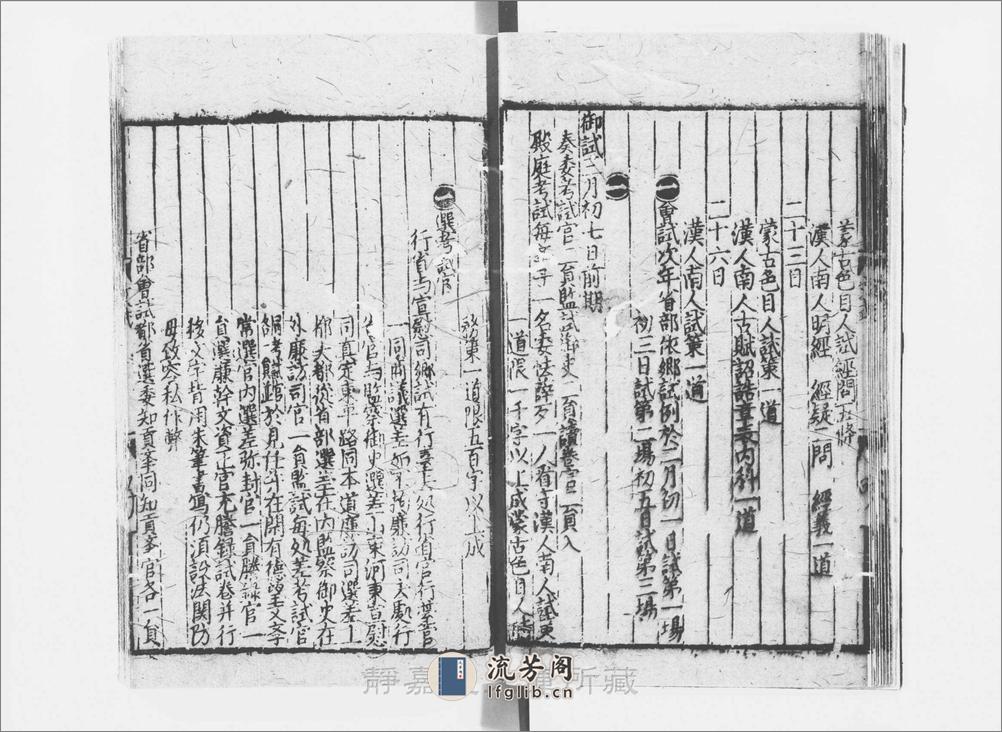 蒙古色目人試經問五條
漢人南人明經　經疑二問　經義一道
二十三日
蒙古色目人試策一道
漢人南人古賦詔誥章表內科一道
二十六日
漢人南人試策一道
會試次年省部依鄉試例於二月初一日試第一場
初三日試第二場初五日試第三場
御試三月初七日前期
奏委考試官二員監試御史二員讀卷官二員入
殿庭考試每舉子一名委怯薛歹一人看守漢人南人試策
一道限一千字以上成蒙古色目人時
務策一道限五百字以上成
選考試官
行省与宣慰司鄉試有行臺去处行省官行臺官
一同商議選差如不拘廉訪司去處行
省官与監察御史選差山東河東宣慰
司真定東平路同本道廉訪司選差上
都大都從省部選差在內監察御史在
外廉訪司官一員監試每处差考試官
同考試官於見任并在閑有德望文學
常選官內選差弥封官一員謄錄官一
員選廉幹文資正官充謄錄試卷并行
移文字皆用朱筆書寫仍須設法關防
毋致容私作弊
省部會試都省選委知貢舉同知貢舉官各一員
流芳阁
lfglib.cn
靜嘉 所藏